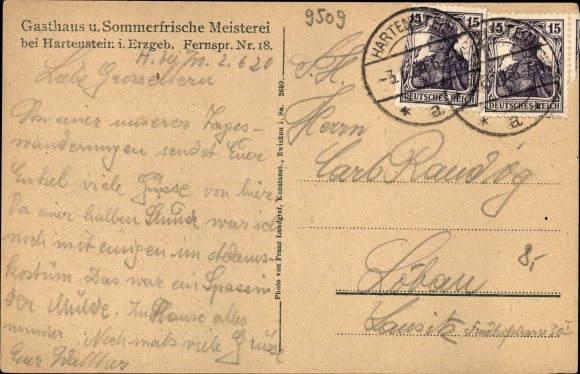 Gasthaus u. Sommerfrische Meisterei
bei Hartenstein i. Erzgeb. Fernspr. Nr. 18.
H. bei Zw. 2.6.20
Liebe Grosseltern
Von einer unserer Tages-
wanderungen sendet Euer
Enkel viele Grüsse von hier.
Vor einer halben Stunde war ich
noch mit einigen im Adams-
kostüm. Das war ein Spass in
der Mulde. Zu Hause alles
munter. Nochmals viele Grüsse
Euer Walther
Photo von Franz Landgraf, Kunstanst., Zwickau i. Sa. 2699.
9509
HARTENSTEIN
a
15 15
DEUTSCHES REICH
15 15
DEUTSCHES REICH
a
Herrn
Carl
Löbau
Lausitz
8,-